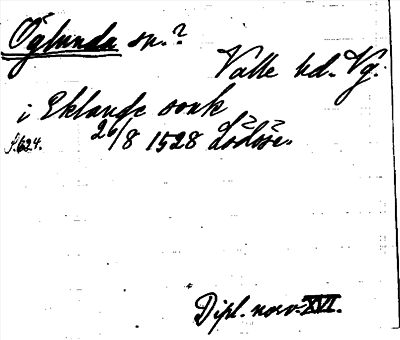 Öglunda sn.?
Valle hd. Vg.
i Eklanda sonk
S. 624. 26/8 1528 Lödöse.
Dipl. norv. XVI.